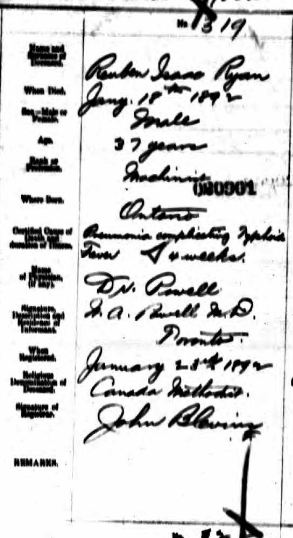 No 1319
Name and Surname of Deceased.
Reuben Isaac Ryan
When Died.
Jany. 18th 1892
Sex—Male or Female.
Male
Age.
37 years
Rank or Profession.
Machinist
030901
Where Born.
Ontario
Certified Cause of Death and duration of Illness.
Pneumonia complicating Typhoid
Fever 4 weeks.
Name of Physician, (if any).
Dr. Powell
Signature, Description and Residence of Informant.
N. A. Powell M.D.
Toronto.
When Registered.
January 23rd 1892
Religious Denomination of Deceased.
Canada Methodist.
Signature of Registrar.
John Blevins
REMARKS.